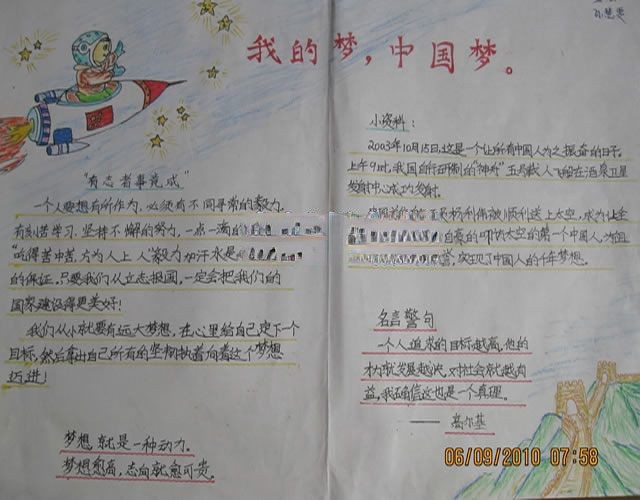 我的梦，中国梦。
"有志者事竟成"
一个人要想有所作为，必须有不同寻常的毅力。
有刻苦学习，坚持不懈的努力，一点一滴的
"吃得苦中苦，方为人上人"毅力加汗水是
的保证，只要我们从立志报国，一定会把我们的
国家建设得更美好！
我们从小就要有远大梦想，在心里给自己定下一个
目标，然后拿出自己所有的坚韧执着向着这个梦想
迈进！
梦想就是一种动力。
梦想愈高，志向就愈可贵。
小资料：
2003年10月15日，这是一个让所有中国人为之振奋的日子。
上午9时，我国自行研制的"神舟"五号载人飞船在酒泉卫星
发射中心成功发射。
杨利伟被顺利送上太空，成为让全
太空的第一个中国人，为祖
实现了中国人的千年梦想。
名言警句
一个人追求的目标越高，他的
才力就发展越快，对社会就越有
益，我确信这也是一个真理。
——高尔基
06/09/2010 07:58